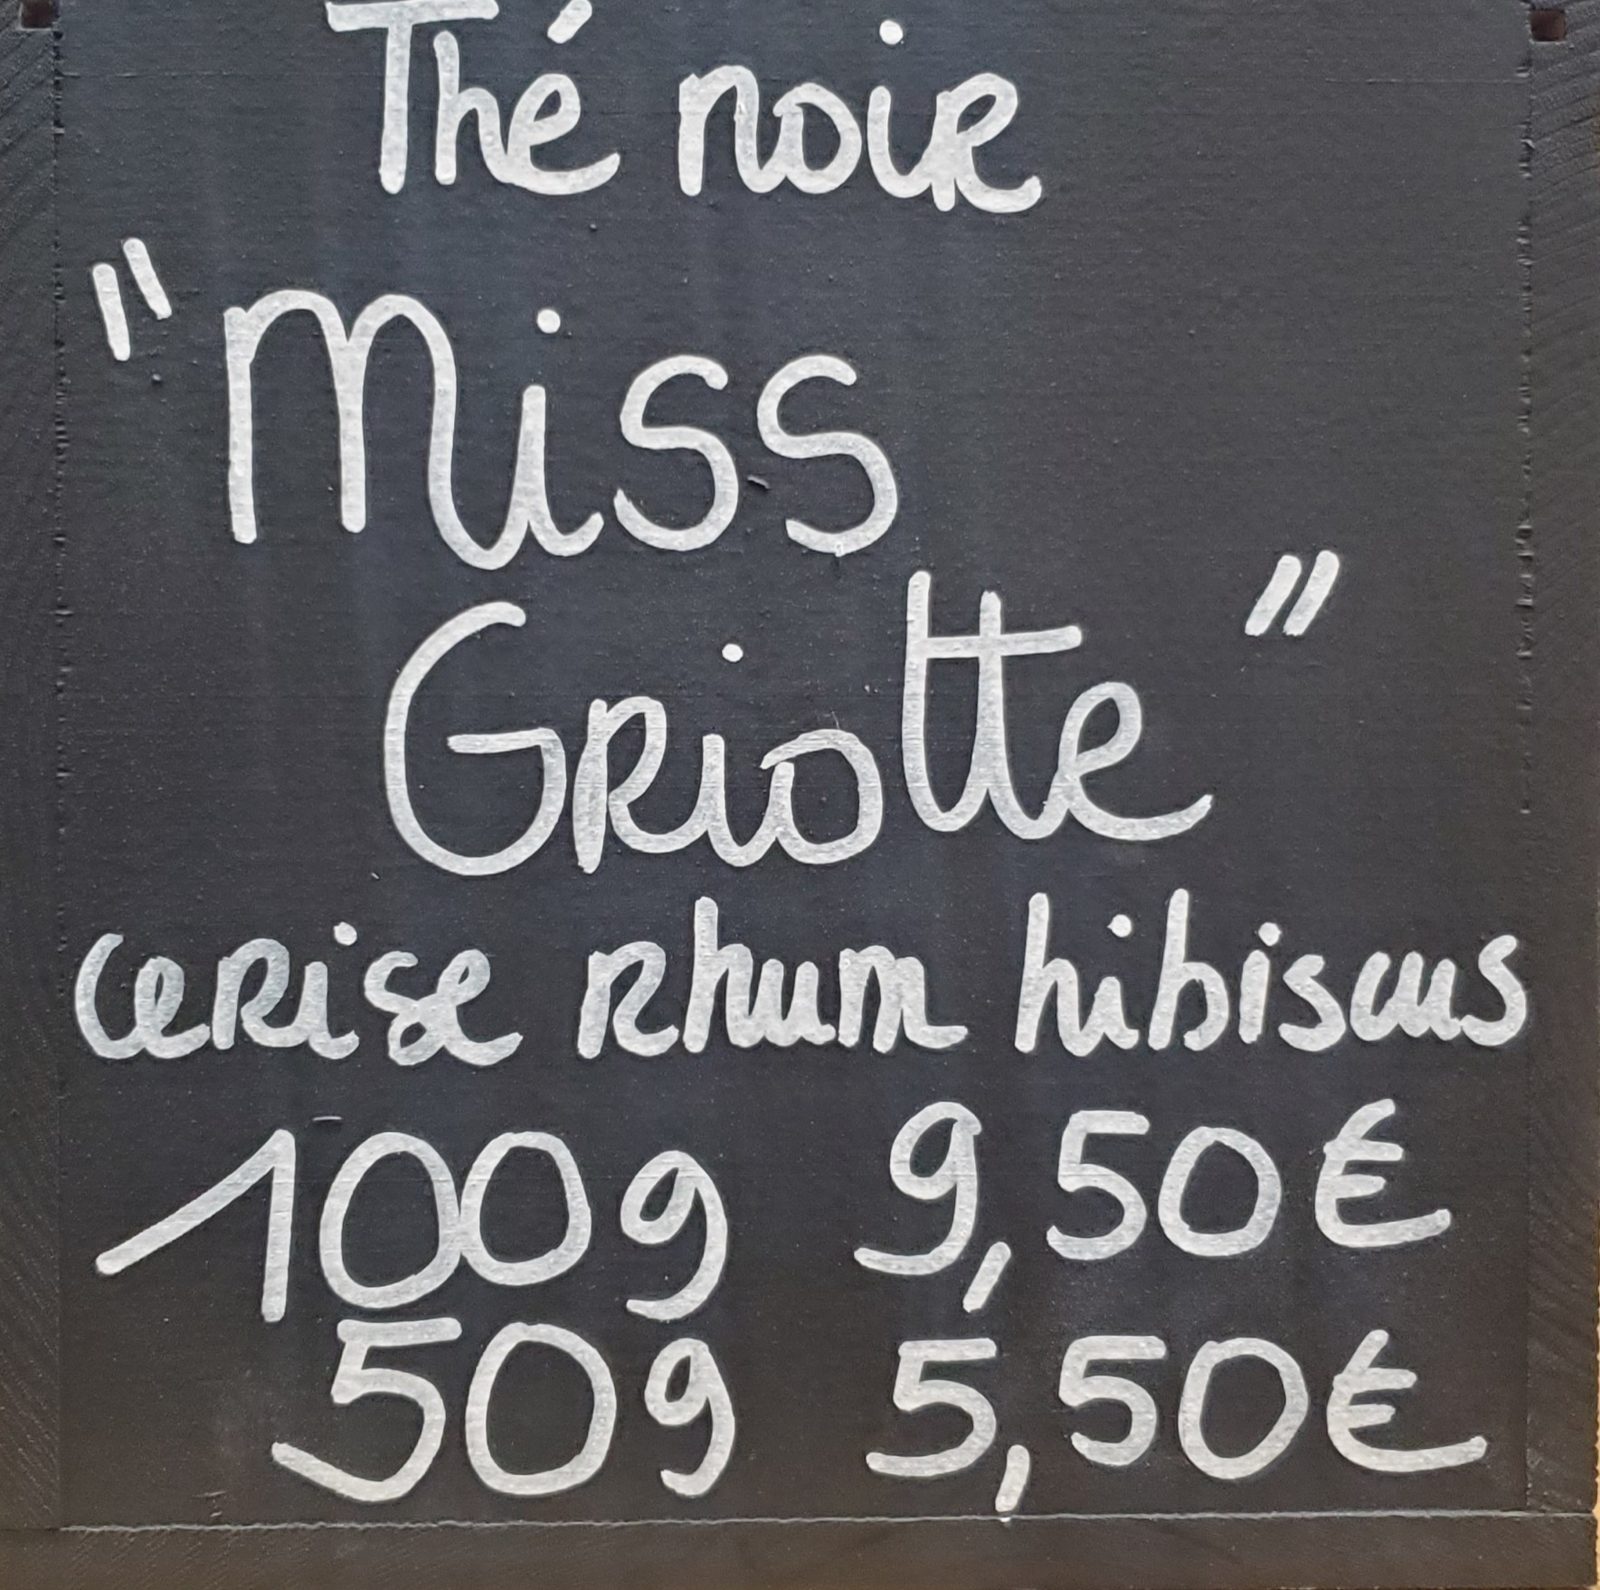 Thé noir
"Miss
Griotte"
cerise rhum hibiscus
100g 9,50€
50g 5,50€